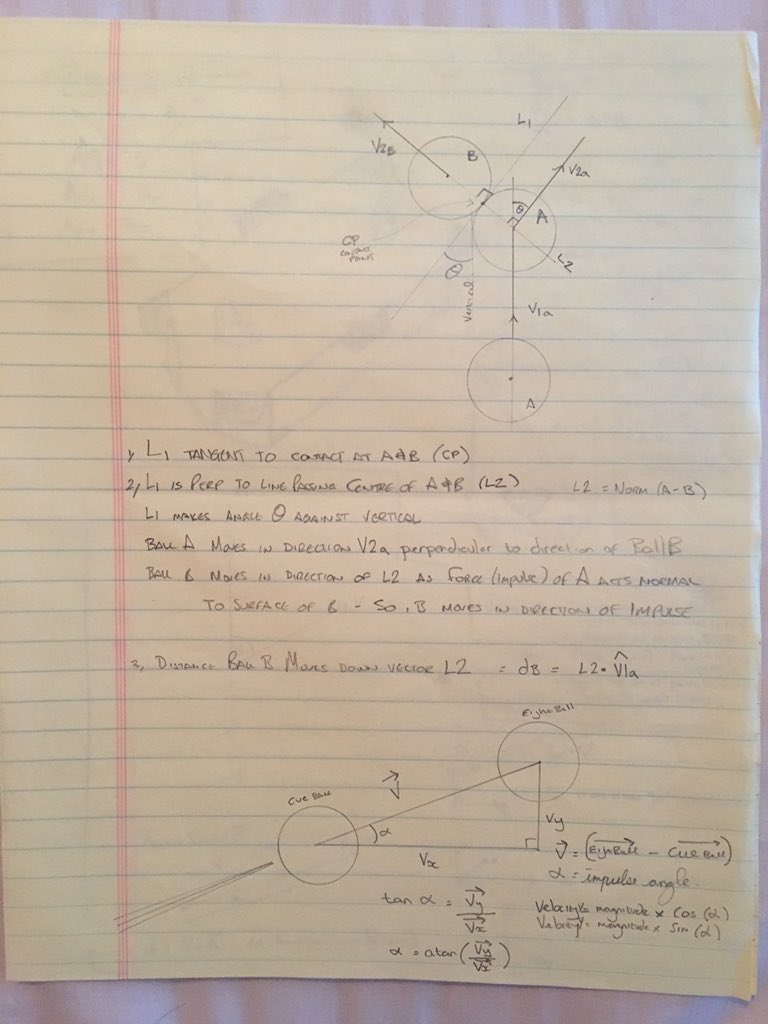 L1
V2B
B
V2a
θ
A
CP
CONTACT
POINT
L2
θ
Vertical
V1a
A
1, L1 TANGENT TO CONTACT AT A&B (CP)
2, L1 IS PERP TO LINE PASSING CENTRE OF A&B (L2) L2 = NORM (A-B)
L1 MAKES ANGLE θ AGAINST VERTICAL
BALL A MOVES IN DIRECTION V2a perpendicular to direction of Ball B
BALL B MOVES IN DIRECTION OF L2 AS FORCE (impulse) OF A ACTS NORMAL
TO SURFACE OF B - SO, B MOVES IN DIRECTION OF IMPULSE
3, DISTANCE BALL B MOVES DOWN VECTOR L2 = dB = L2 • V̂1a
Eight Ball
Cue Ball
V⃗
α
Vy
Vx
V⃗ = (Eight Ball - Cue Ball)
α = impulse angle.
tan α = V⃗y / V⃗x
Velocity x = magnitude x Cos (α)
Velocity y = magnitude x Sin (α)
α = atan (V⃗y / V⃗x)